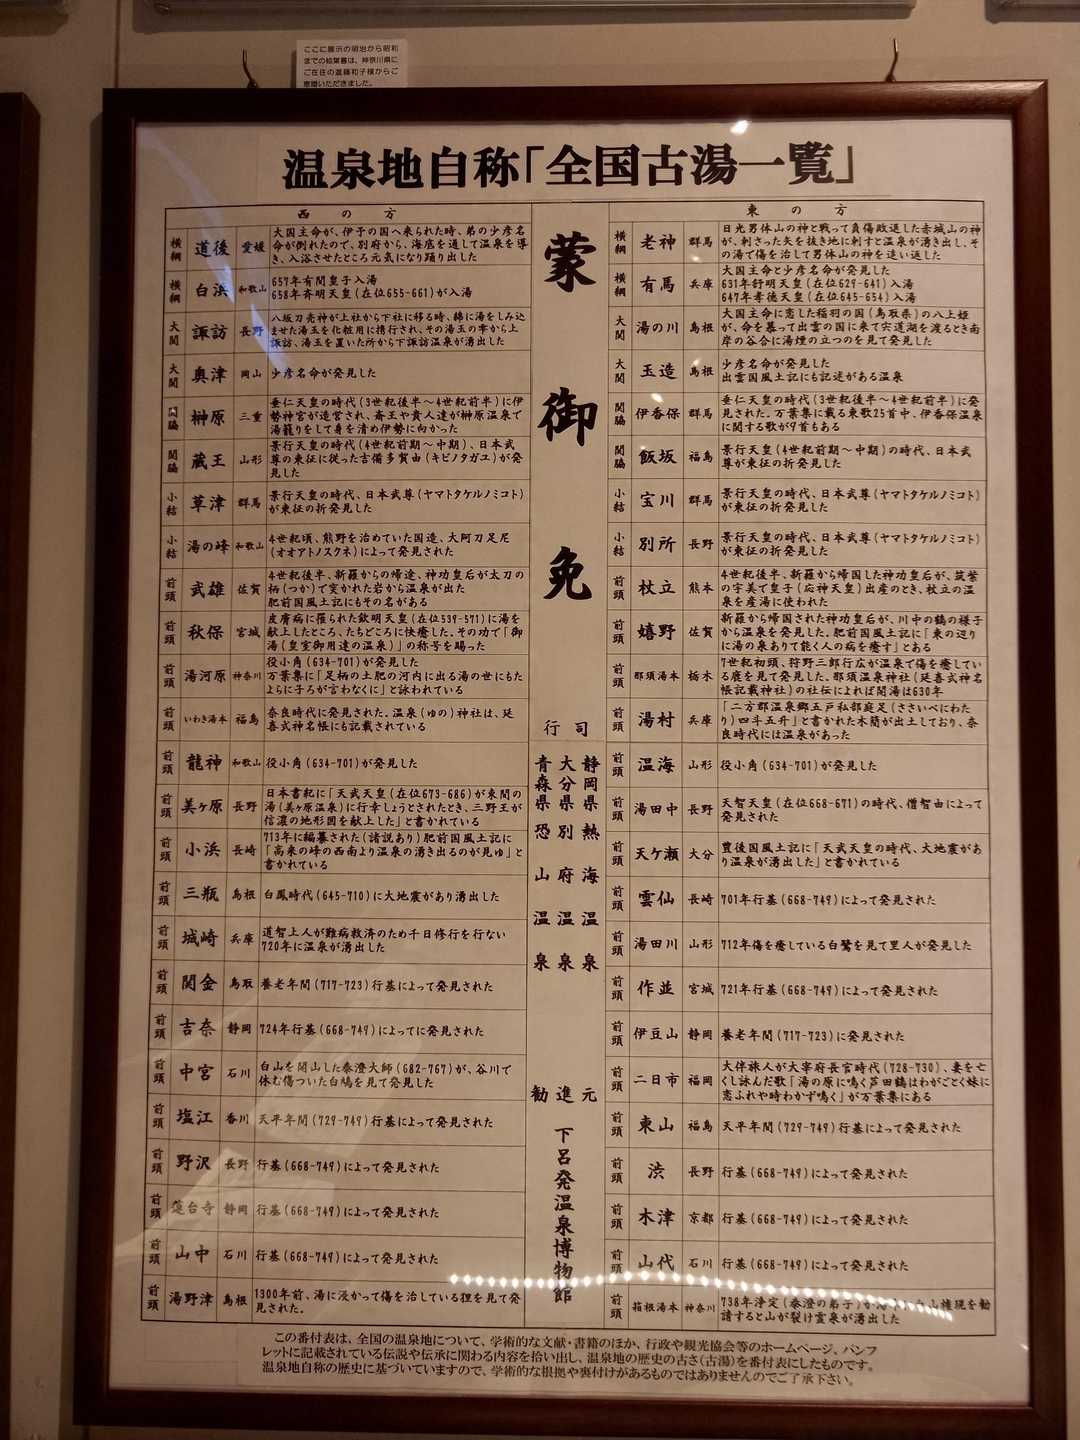 ここに展示の明治から昭和
までの絵葉書は、神奈川県に
ご在住の
様からご
恵贈いただきました。
温泉地自称「全国古湯一覧」
東の方
横綱 老神 群馬 日光男体山の神と戦って負傷敗退した赤城山の神
が、刺さった矢を抜き地に刺すと温泉が湧き出し、そ
の湯で傷を治して男体山の神を追い返した
横綱 有馬 兵庫 大国主命と少彦名命が発見した
631年舒明天皇(在位629-641)入湯
647年孝徳天皇(在位645-654)入湯
大関 湯の川 島根 大国主命に恋した稲羽の国(鳥取県)の八上姫
が、命を慕って出雲の国に来て宍道湖を渡るとき南
岸の谷合に湯煙の立つのを見て発見した
大関 玉造 島根 少彦名命が発見した
出雲国風土記にも記述がある温泉
関脇 伊香保 群馬 垂仁天皇の時代(3世紀後半～4世紀前半)に発
見された。万葉集に載る東歌25首中、伊香保温泉
に関する歌が9首もある
関脇 飯坂 福島 景行天皇(4世紀前期～中期)の時代、日本武
尊が東征の折発見した
小結 宝川 群馬 景行天皇の時代、日本武尊(ヤマトタケルノミコト)
が東征の折発見した
小結 別所 長野 景行天皇の時代、日本武尊(ヤマトタケルノミコト)
が東征の折発見した
前頭 杖立 熊本 4世紀後半、新羅から帰国した神功皇后が、筑紫
の宇美で皇子(応神天皇)出産のとき、杖立の温
泉を産湯に使われた
前頭 嬉野 佐賀 新羅から帰国された神功皇后が、川中の鶴の様子
から温泉を発見した。肥前国風土記に「東の辺り
に湯の泉ありて能く人の病を癒す」とある
前頭 那須湯本 栃木 7世紀初頭、狩野三郎行広が温泉で傷を癒してい
る鹿を見て発見した。那須温泉神社(延喜式神名
帳記載神社)の社伝によれば開湯は630年
前頭 湯村 兵庫 「二方郡温泉郷五戸私部庭足(ささいべにわた
り)四斗五升」と書かれた木簡が出土しており、奈
良時代には温泉があった
前頭 温海 山形 役小角(634-701)が発見した
前頭 湯田中 長野 天智天皇(在位668-671)の時代、僧智由によって
発見された
前頭 天ケ瀬 大分 豊後国風土記に「天武天皇の時代、大地震があ
り温泉が湧出した」と書かれている
前頭 雲仙 長崎 701年行基(668-749)によって発見された
前頭 湯田川 山形 712年傷を癒している白鷺を見て里人が発見した
前頭 作並 宮城 721年行基(668-749)によって発見された
前頭 伊豆山 静岡 養老年間(717-723)に発見された
前頭 二日市 福岡 大伴旅人が大宰府長官時代(728-730)、妻を亡
くし詠んだ歌「湯の原に鳴く芦田鶴はわがごとく妹に
恋ふれや時わかず鳴く」が万葉集にある
前頭 東山 福島 天平年間(729-749)行基によって発見された
前頭 渋 長野 行基(668-749)によって発見された
前頭 木津 京都 行基(668-749)によって発見された
前頭 山代 石川 行基(668-749)によって発見された
前頭 箱根湯本 神奈川 738年浄定(泰澄の弟子)が
山権現を勧
請すると山が裂け霊泉が湧出した
蒙御免
行司
静岡県 熱海温泉
大分県 別府温泉
青森県 恐山温泉
勧進元
下呂発温泉博物館
西の方
横綱 道後 愛媛 大国主命が、伊予の国へ来られた時、弟の少彦名
命が倒れたので、別府から、海底を通して温泉を導
き、入浴させたところ元気になり踊り出した
横綱 白浜 和歌山 657年有間皇子入湯
658年斉明天皇(在位655-661)が入湯
大関 諏訪 長野 八坂刀売神が上社から下社に移る時、綿に湯をしみ込
ませた湯玉を化粧用に携行され、その湯玉の雫から上
諏訪、湯玉を置いた所から下諏訪温泉が湧出した
大関 奥津 岡山 少彦名命が発見した
関脇 榊原 三重 垂仁天皇の時代(3世紀後半～4世紀前半)に伊
勢神宮が造営され、斎王や貴人達が榊原温泉で
湯籠りをして身を清め伊勢に向かった
関脇 蔵王 山形 景行天皇の時代(4世紀前期～中期)、日本武
尊の東征に従った吉備多賀由(キビノタガユ)が発
見した
小結 草津 群馬 景行天皇の時代、日本武尊(ヤマトタケルノミコト)
が東征の折発見した
小結 湯の峰 和歌山 4世紀頃、熊野を治めていた国造、大阿刀足尼
(オオアトノスクネ)によって発見された
前頭 武雄 佐賀 4世紀後半、新羅からの帰途、神功皇后が太刀の
柄(つか)で突かれた岩から温泉が出た
肥前国風土記にもその名がある
前頭 秋保 宮城 皮膚病に罹られた欽明天皇(在位539-571)に湯を
献上したところ、たちどころに快癒した。その功で「御
湯(皇室御用達の温泉)」の称号を賜った
前頭 湯河原 神奈川 役小角(634-701)が発見した
万葉集に「足柄の土肥の河内に出る湯の世にもた
よらに子ろが言わなくに」と詠われている
前頭 いわき湯本 福島 奈良時代に発見された。温泉(ゆの)神社は、延
喜式神名帳にも記載されている
前頭 龍神 和歌山 役小角(634-701)が発見した
前頭 美ヶ原 長野 日本書紀に「天武天皇(在位673-686)が束間の
湯(美ヶ原温泉)に行幸しょうとされたとき、三野王が
信濃の地形図を献上した」と書かれている
前頭 小浜 長崎 713年に編纂された(諸説あり)肥前国風土記に
「高来の峰の西南より温泉の湧き出るのが見ゆ」と
書かれている
前頭 三瓶 島根 白鳳時代(645-710)に大地震があり湧出した
前頭 城崎 兵庫 道智上人が難病救済のため千日修行を行ない
720年に温泉が湧出した
前頭 関金 鳥取 養老年間(717-723)行基によって発見された
前頭 吉奈 静岡 724年行基(668-749)によってに発見された
前頭 中宮 石川 白山を開山した泰澄大師(682-767)が、谷川で
休む傷ついた白鳩を見て発見した
前頭 塩江 香川 天平年間(729-749)行基によって発見された
前頭 野沢 長野 行基(668-749)によって発見された
前頭 蓮台寺 静岡 行基(668-749)によって発見された
前頭 山中 石川 行基(668-749)によって発見された
前頭 湯野津 島根 1300年前、湯に浸かって傷を治している狸を見て発
見された。
この番付表は、全国の温泉地について、学術的な文献・書籍のほか、行政や観光協会等のホームページ、パンフ
レットに記載されている伝説や伝承に関わる内容を拾い出し、温泉地の歴史の古さ(古湯)を番付表にしたものです。
温泉地自称の歴史に基づいていますので、学術的な根拠や裏付けがあるものではありませんのでご了承下さい。